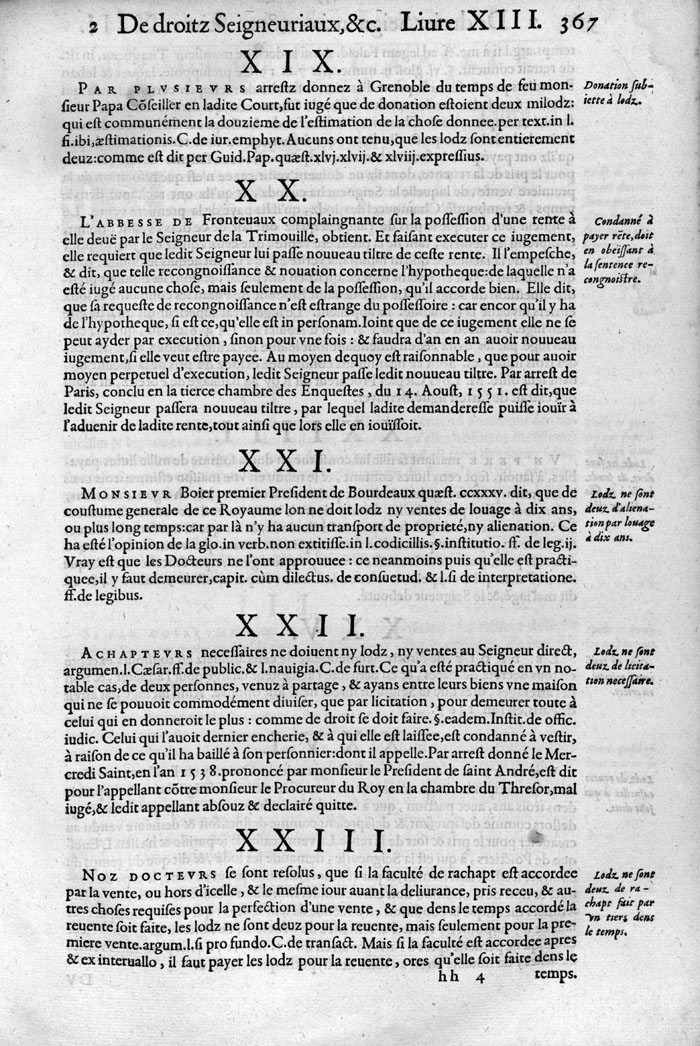 2 De droitz Seigneuriaux,&c. Liure XIII. 367
XIX.
PAR PLVSIEVRS arrestz donnez à Grenoble du temps de feu mon-
sieur Papa Cõseiller en ladite Court,fut iugé que de donation estoient deux milodz:
qui est communément la douzieme de l'estimation de la chose donnee.per text.in l.
si.ibi,æstimationis.C.de iur.emphyt.Aucuns ont tenu,que les lodz sont entierement
deuz:comme est dit per Guid.Pap.quæst.xlvj.xlvij.& xlviij.expressius.
Donation sub-
iette à lodz.
XX.
L'ABBESSE DE Fronteuaux complaingnante sur la possession d'une rente à
elle deuë par le Seigneur de la Trimouille, obtient. Et faisant executer ce iugement,
elle requiert que ledit Seigneur lui passe nouueau tiltre de ceste rente. Il l'empesche,
& dit, que telle recongnoissance & nouation concerne l'hypotheque:de laquelle n'a
esté iugé aucune chose, mais seulement de la possession, qu'il accorde bien. Elle dit,
que sa requeste de recongnoissance n'est estrange du possessoire : car encor qu'il y ha
de l'hypotheque, si est ce,qu'elle est in personam.Ioint que de ce iugement elle ne se
peut ayder par execution, sinon pour vne fois : & faudra d'an en an auoir nouueau
iugement,si elle veut estre payee. Au moyen dequoy est raisonnable, que pour auoir
moyen perpetuel d'execution, ledit Seigneur passe ledit nouueau tiltre. Par arrest de
Paris, conclu en la tierce chambre des Enquestes, du 14. Aoust, 1551. est dit,que
ledit Seigneur passera nouueau tiltre, par lequel ladite demanderesse puisse iouïr à
l'aduenir de ladite rente,tout ainsi que lors elle en iouïssoit.
Condanné à
payer rẽte,doit
en obeïssant à
la sentence re-
congnoistre.
XXI.
MONSIEVR Boier premier President de Bourdeaux quæst. ccxxxv. dit, que de
coustume generale de ce Royaume lon ne doit lodz ny ventes de louage à dix ans,
ou plus long temps:car par là n'y ha aucun transport de proprieté,ny alienation. Ce
ha esté l'opinion de la glo.in verb.non extitisse.in l.codicillis.§.institutio. ff. de leg.ij.
Vray est que les Docteurs ne l'ont approuuee : ce neanmoins puis qu'elle est practi-
quee,il y faut demeurer,capit. cùm dilectus. de consuetud. & l.si de interpretatione.
ff.de legibus.
Lodz ne sont
deuz d'aliena-
tion par louage
à dix ans.
XXII.
ACHAPTEVRS necessaires ne doiuent ny lodz, ny ventes au Seigneur direct,
argumen.l.Cæsar.ff.de public.& l.nauigia.C.de furt.Ce qu'a esté practiqué en vn no-
table cas,de deux personnes, venuz à partage, & ayans entre leurs biens vne maison
qui ne se pouuoit commodément diuiser, que par licitation, pour demeurer toute à
celui qui en donneroit le plus : comme de droit se doit faire.§.eadem.Instit.de offic.
iudic. Celui qui l'auoit dernier encherie, & à qui elle est laissee,est condanné à vestir,
à raison de ce qu'il ha baillé à son personnier:dont il appelle.Par arrest donné le Mer-
credi Saint,en l'an 1538.prononcé par monsieur le President de saint André,est dit
pour l'appellant cõtre monsieur le Procureur du Roy en la chambre du Thresor,mal
iugé,& ledit appellant absouz & declairé quitte.
Lodz ne sont
deuz de licita-
tion necessaire.
XXIII.
NOZ DOCTEVRS se sont resolus, que si la faculté de rachapt est accordee
par la vente, ou hors d'icelle, & le mesme iour auant la deliurance, pris receu, & au-
tres choses requises pour la perfection d'une vente, & que dens le temps accordé la
reuente soit faite, les lodz ne sont deuz pour la reuente, mais seulement pour la pre-
miere vente.argum.l.si pro fundo.C.de transact. Mais si la faculté est accordee apres
& ex interuallo, il faut payer les lodz pour la reuente, ores qu'elle soit faite dens le
Lodz ne sont
deuz de ra-
chapt fait par
vn tiers dens
le temps.
hh 4 temps.